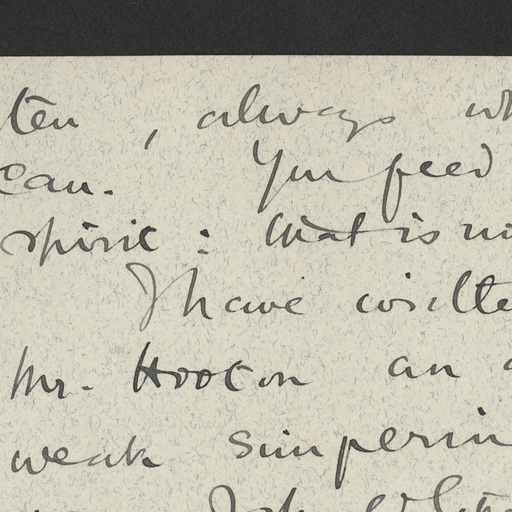 ten, always wh
can. You feed
spirit: that is no
I have writte
Mr. Hooton an a
weak simperin